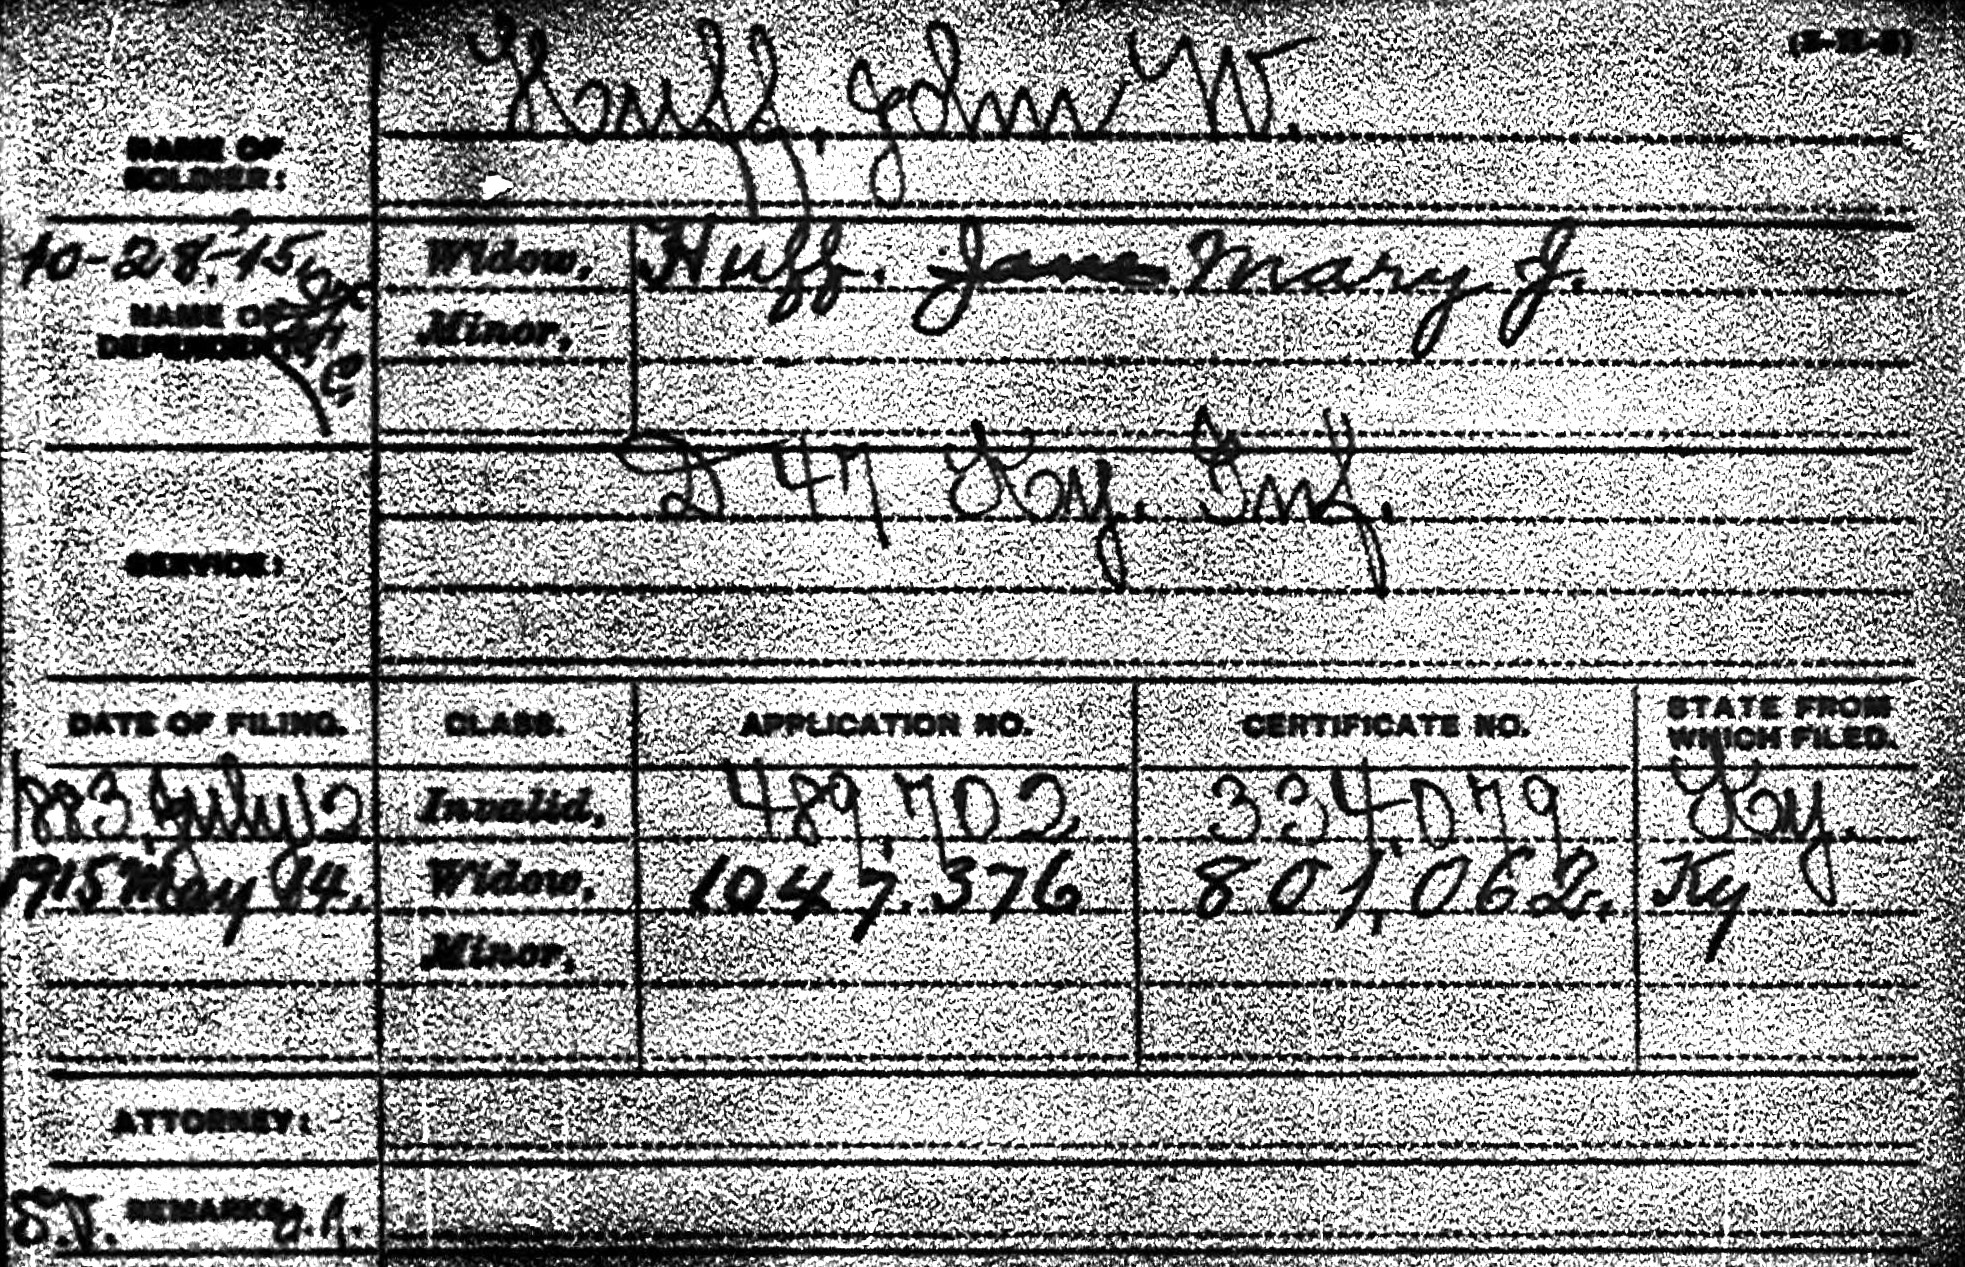 Huff, John W.
NAME OF
SOLDIER:
10-28-15
Widow, Huff. Jane Mary J.
NAME OF
DEPENDENT:
Minor,
D 47 Ky. Inf.
SERVICE:
DATE OF FILING. CLASS. APPLICATION NO. CERTIFICATE NO. STATE FROM WHICH FILED.
1883 July 12 Invalid, 489,702 334,079 Ky.
1915 May 14. Widow, 1047.376 801,062. Ky
Minor,
ATTORNEY:
REMARKS: